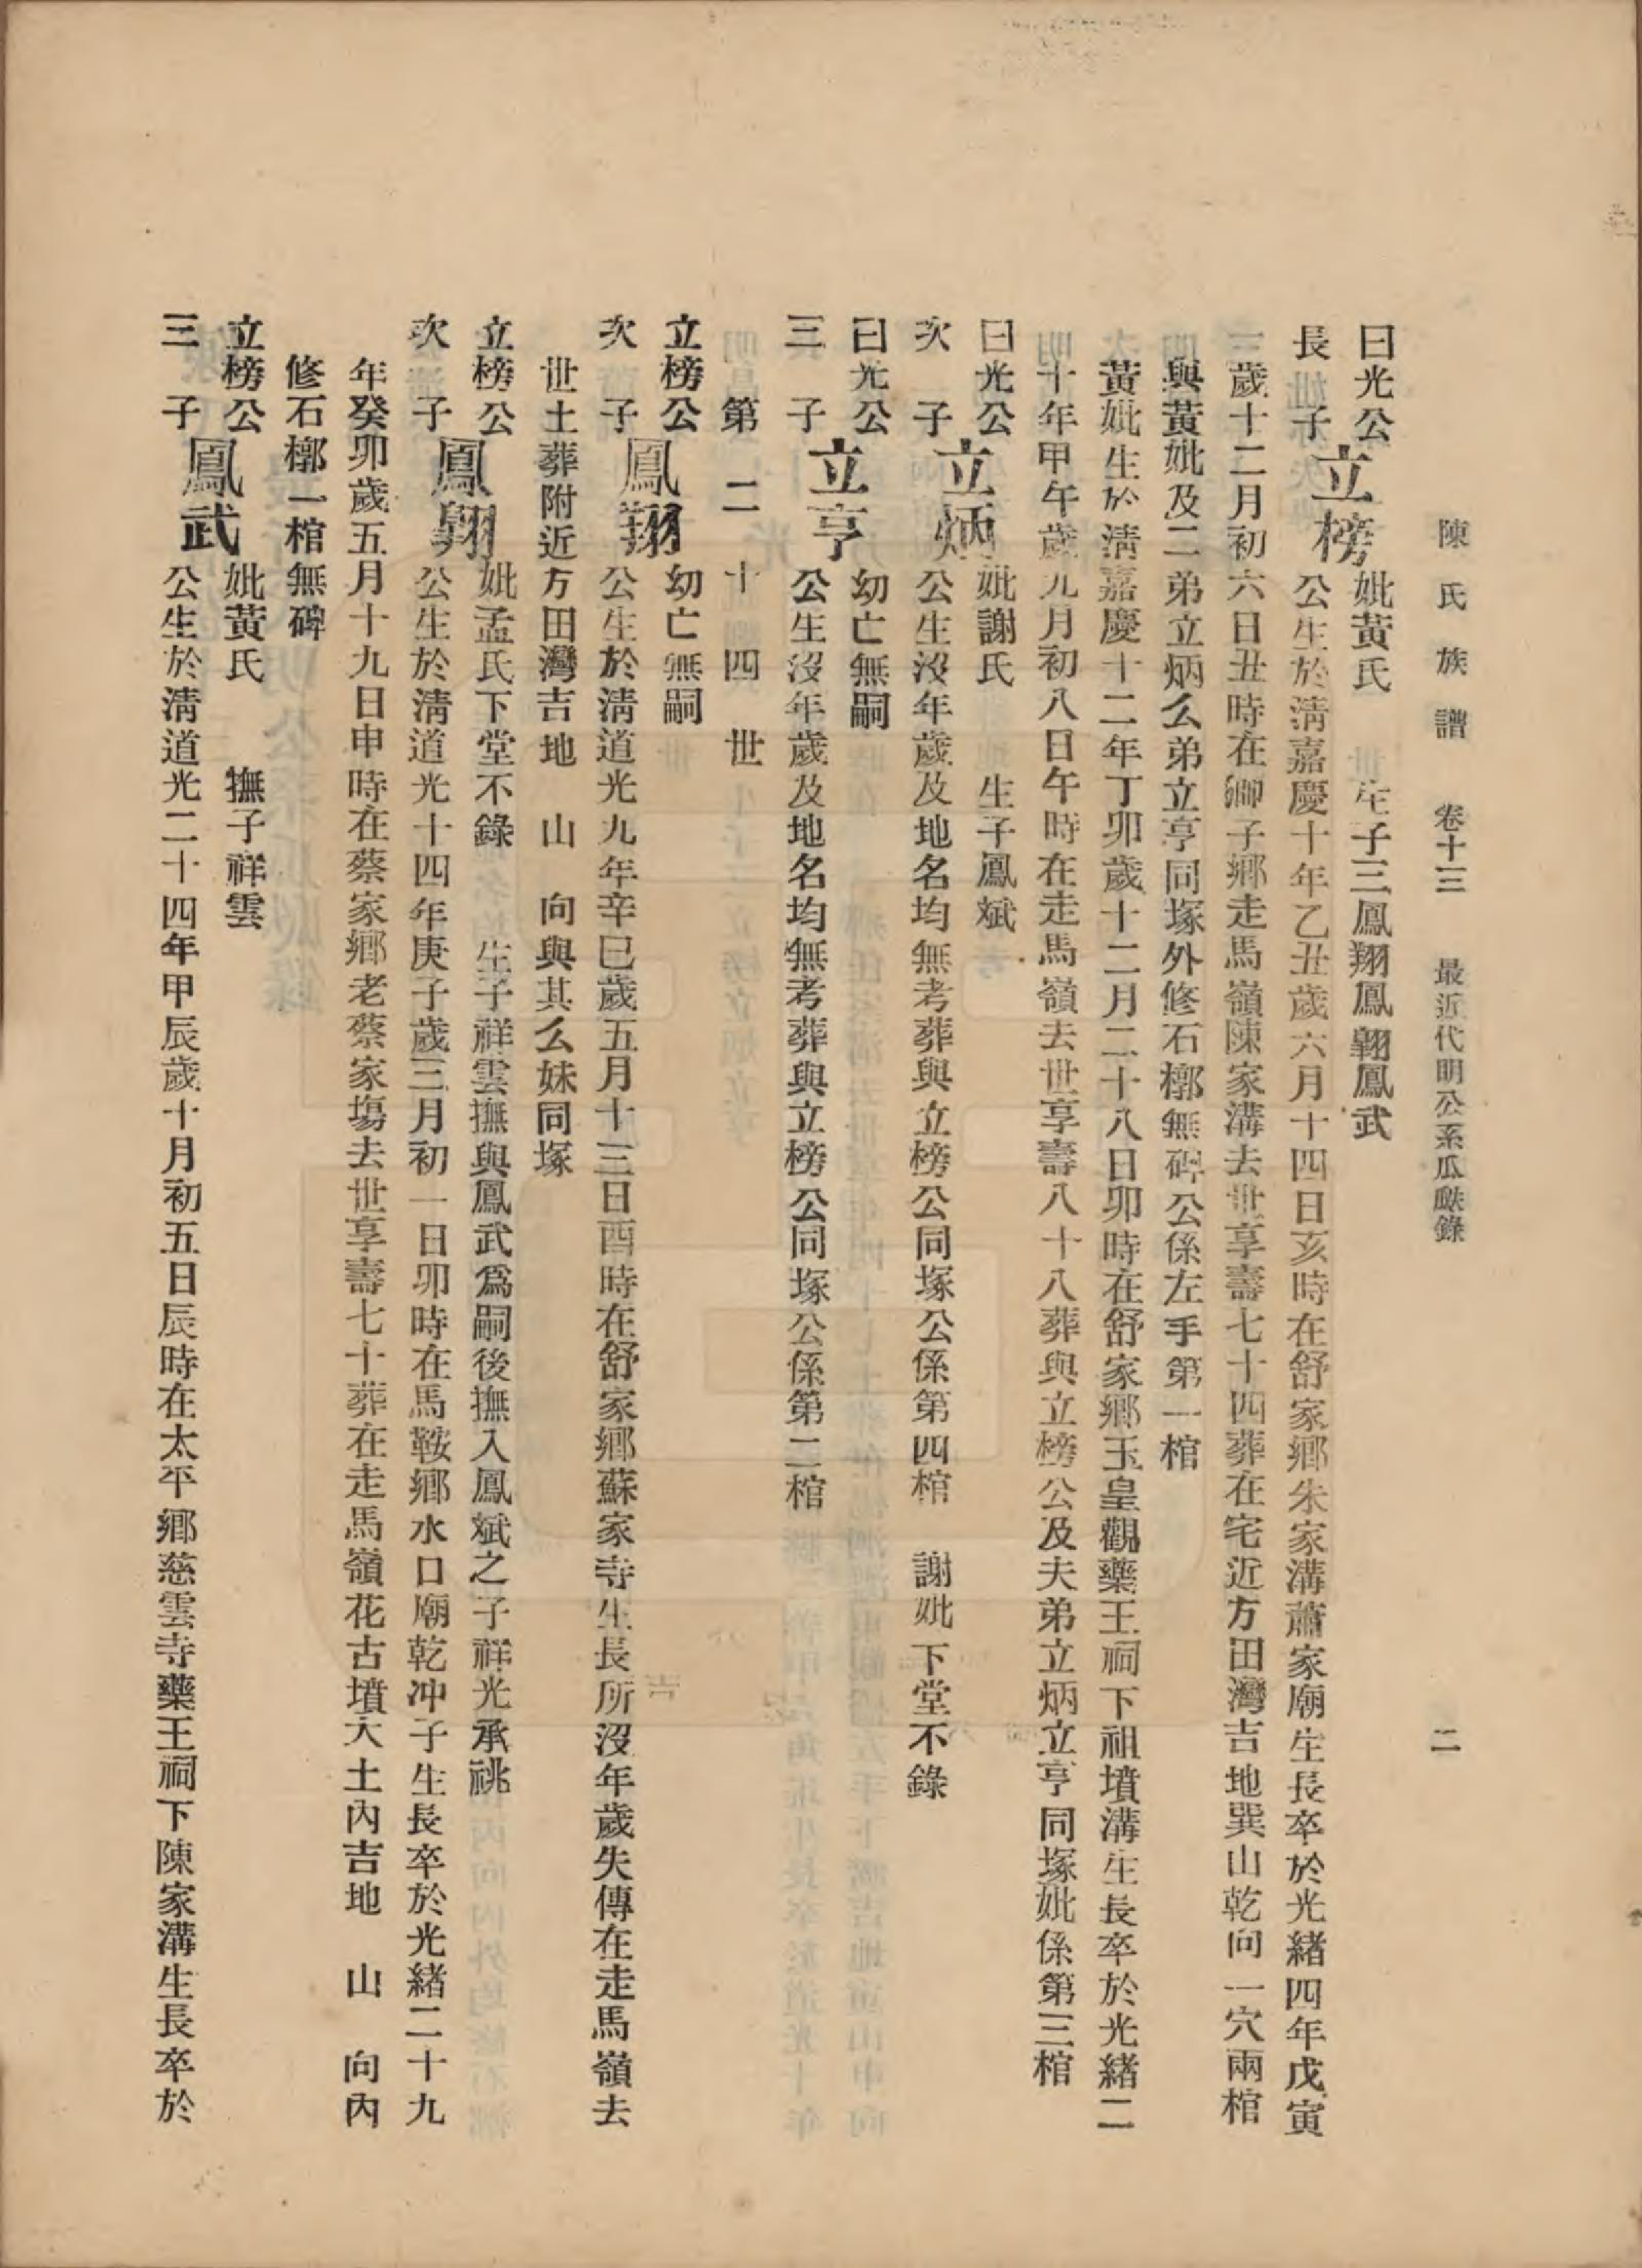 陳氏族譜 卷十三 最近代明公系瓜瓞錄 二
曰光公長子 立榜 妣黃氏 生子三鳳翔鳳翺鳳武
公生於淸嘉慶十年乙丑歲六月十四日亥時在舒家鄉朱家溝蕭家廟生長卒於光緒四年戊寅
歲十二月初六日丑時在獅子鄉走馬嶺陳家溝去世享壽七十四葬在宅近方田灣吉地巽山乾向一穴兩棺
與黃妣及二弟立炳么弟立亨同塚外修石槨無碑公係左手第一棺
黃妣生於淸嘉慶十二年丁卯歲十二月二十八日卯時在舒家鄉玉皇觀藥王祠下祖墳溝生長卒於光緒二
十年甲午歲九月初八日午時在走馬嶺去世享壽八十八葬與立榜公及夫弟立炳立亨同塚妣係第三棺
曰光公次子 立炳 妣謝氏 生子鳳斌
公生沒年歲及地名均無考葬與立榜公同塚公係第四棺 謝妣下堂不錄
曰光公三子 立亨 幼亡無嗣
公生沒年歲及地名均無考葬與立榜公同塚公係第二棺
第二十四世
立榜公次子 鳳翔 幼亡無嗣
公生於淸道光九年辛巳歲五月十三日酉時在舒家鄉蘇家寺生長所沒年歲失傳在走馬嶺去
世土葬附近方田灣吉地 山 向與其么妹同塚
立榜公次子 鳳翺 妣孟氏下堂不錄 生子祥雲撫與鳳武爲嗣後撫入鳳斌之子祥光承祧
公生於淸道光十四年庚子歲三月初一日卯時在馬鞍鄉水口廟乾冲子生長卒於光緒二十九
年癸卯歲五月十九日申時在蔡家鄉老蔡家塲去世享壽七十葬在走馬嶺花古墳大土內吉地 山 向內
修石槨一棺無碑
立榜公三子 鳳武 妣黃氏 撫子祥雲
公生於淸道光二十四年甲辰歲十月初五日辰時在太平鄉慈雲寺藥王祠下陳家溝生長卒於